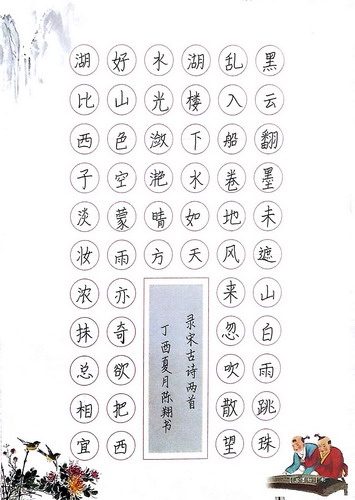 黑云翻墨未遮山白雨跳珠
乱入船卷地风来忽吹散望
湖楼下水如天
水光潋滟晴方
好山色空蒙雨亦奇欲把西
湖比西子淡妆浓抹总相宜
录宋古诗两首
丁酉夏月陈翔书